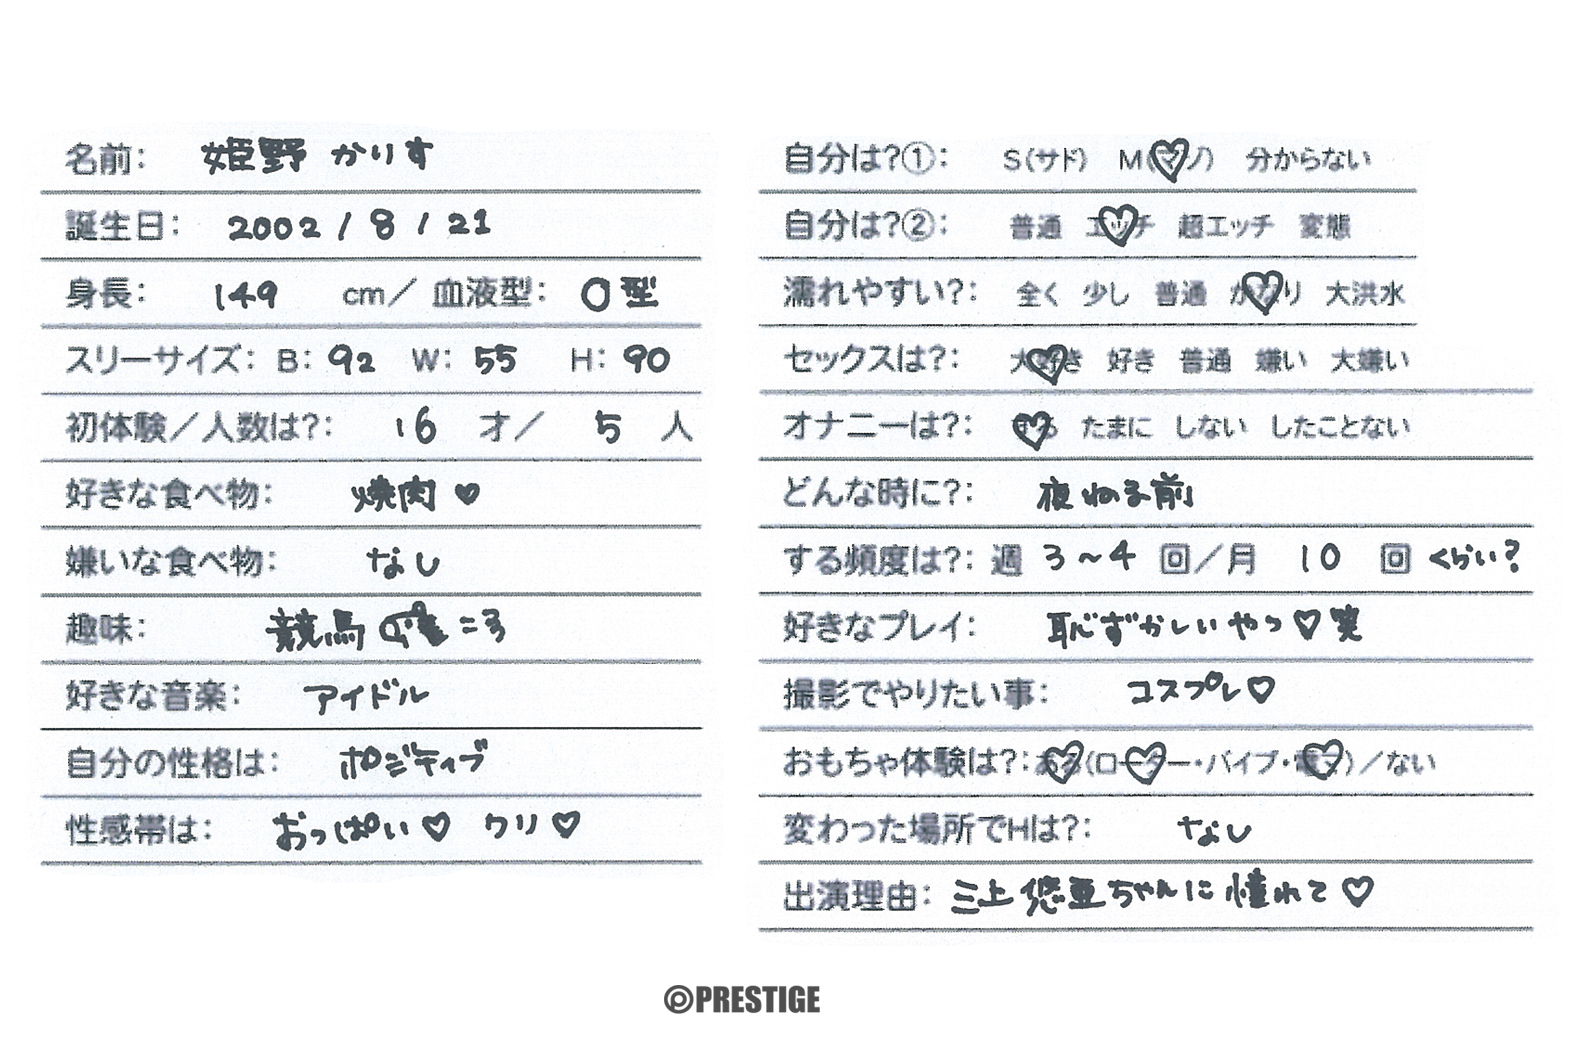 名前： 姫野 かりす
誕生日： 2002 / 8 / 21
身長： 149 cm／ 血液型： O型
スリーサイズ： B： 92 W： 55 H： 90
初体験／人数は?： 16 才／ 5 人
好きな食べ物： 焼肉♡
嫌いな食べ物： なし
趣味： 競馬
好きな音楽： アイドル
自分の性格は： ポジティブ
性感帯は： おっぱい♡ クリ♡
自分は?①： S(サド) M(マゾ) 分からない
自分は?②： 普通 エッチ 超エッチ 変態
濡れやすい?： 全く 少し 普通 かなり 大洪水
セックスは?： 大好き 好き 普通 嫌い 大嫌い
オナニーは?： する たまに しない したことない
どんな時に?： 夜ねる前
する頻度は?： 週 3～4 回／月 10 回 くらい？
好きなプレイ： 恥ずかしいやつ♡笑
撮影でやりたい事： コスプレ♡
おもちゃ体験は?：ある(ローター・バイブ・電マ)／ない
変わった場所でHは?： なし
出演理由： 三上悠亜ちゃんに憧れて♡
℗PRESTIGE